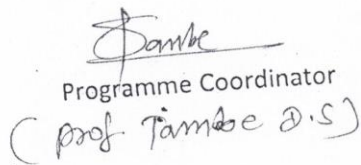 Tambe
Programme Coordinator
(Prof Tambe D.S)